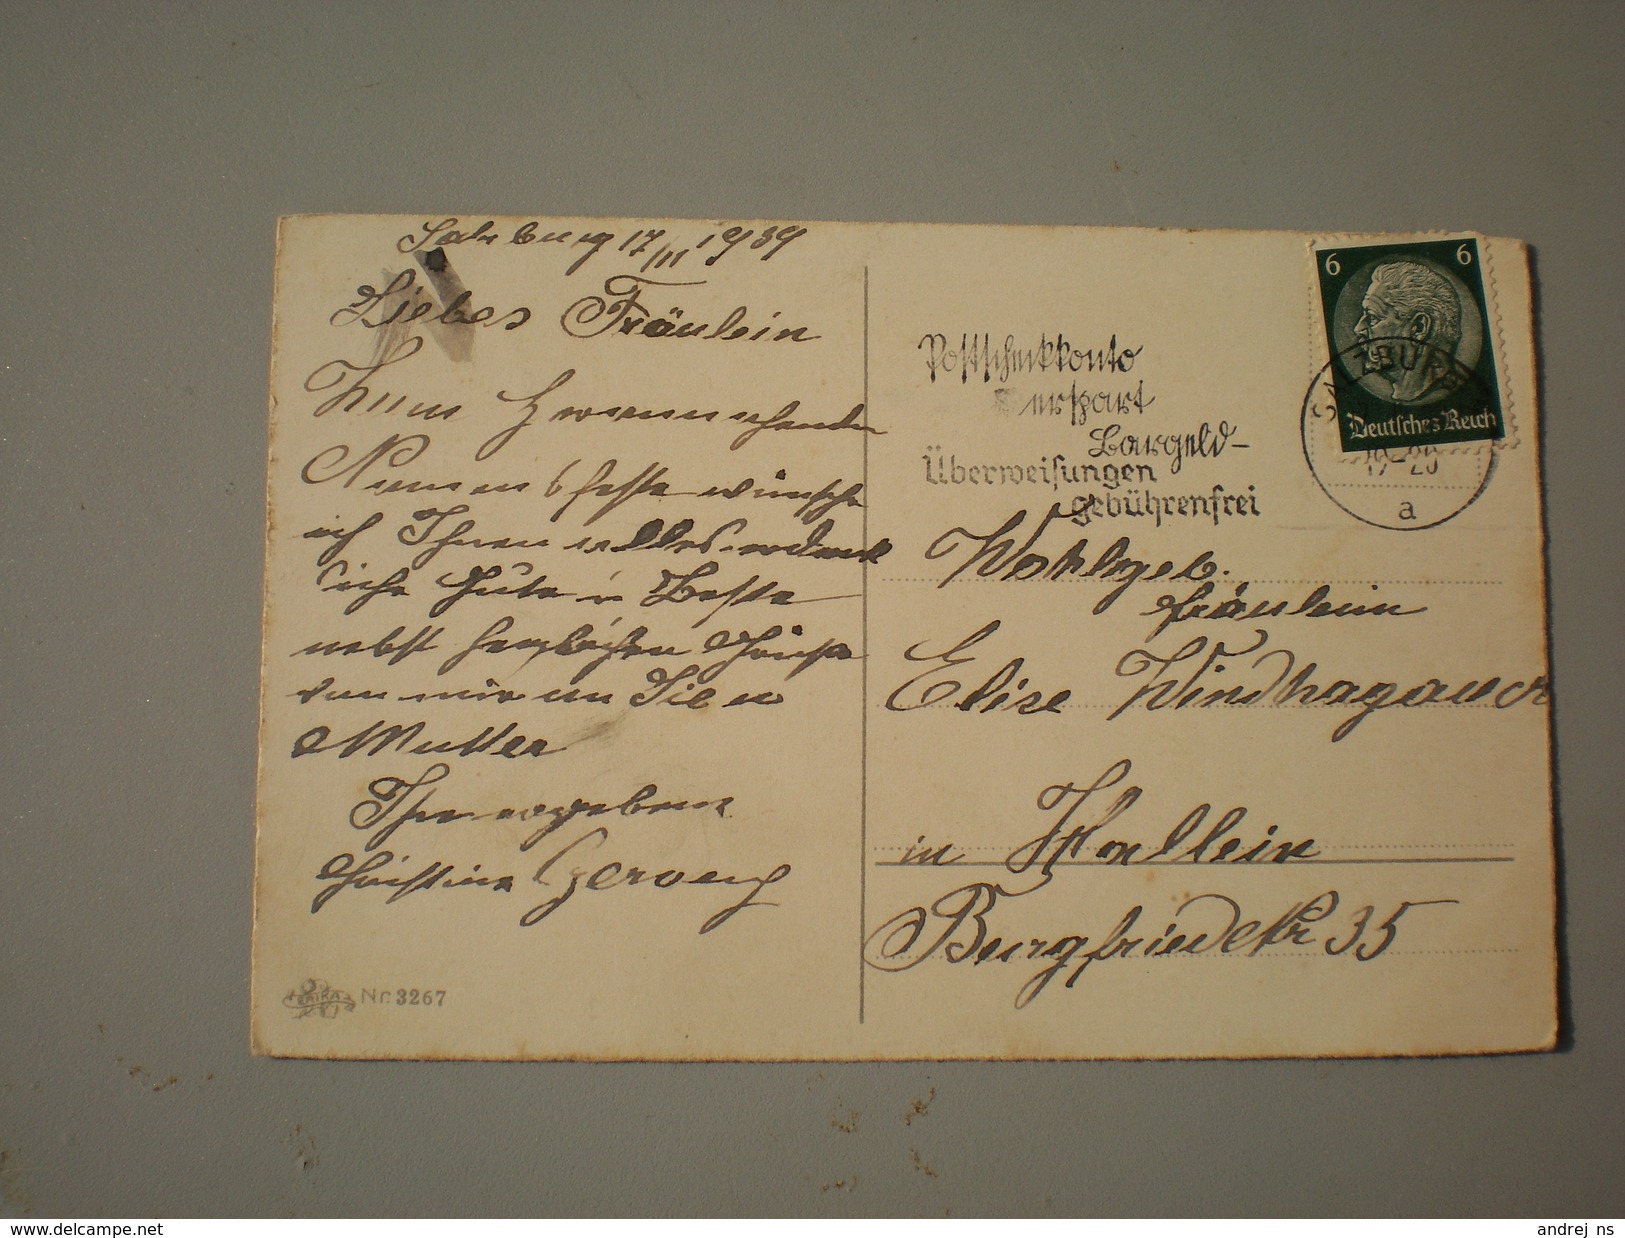 Salzburg 17/III 1939
Liebes Fräulein
Zum herannahenden
Namensfeste wünsche
ich Ihnen alles erdenk
liche Gute u Beste
nebst herzlichen Grüße
von mir an Sie u
Mutter
Ihre ergebene
Christine
ERIKA
Nr. 3267
Postscheckkonto
erspart
Bargeld-
Überweisungen
gebührenfrei
6 6
Deutsches Reich
SALZBURG
19-20
a
Wohlgeb.
Fräulein
Elise Windhagauer
in Hallein
Burgfriedstr 35
www.delcampe.net
andrej_ns